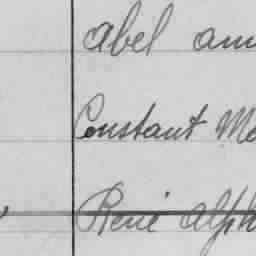 Abel
Constant
René Alph